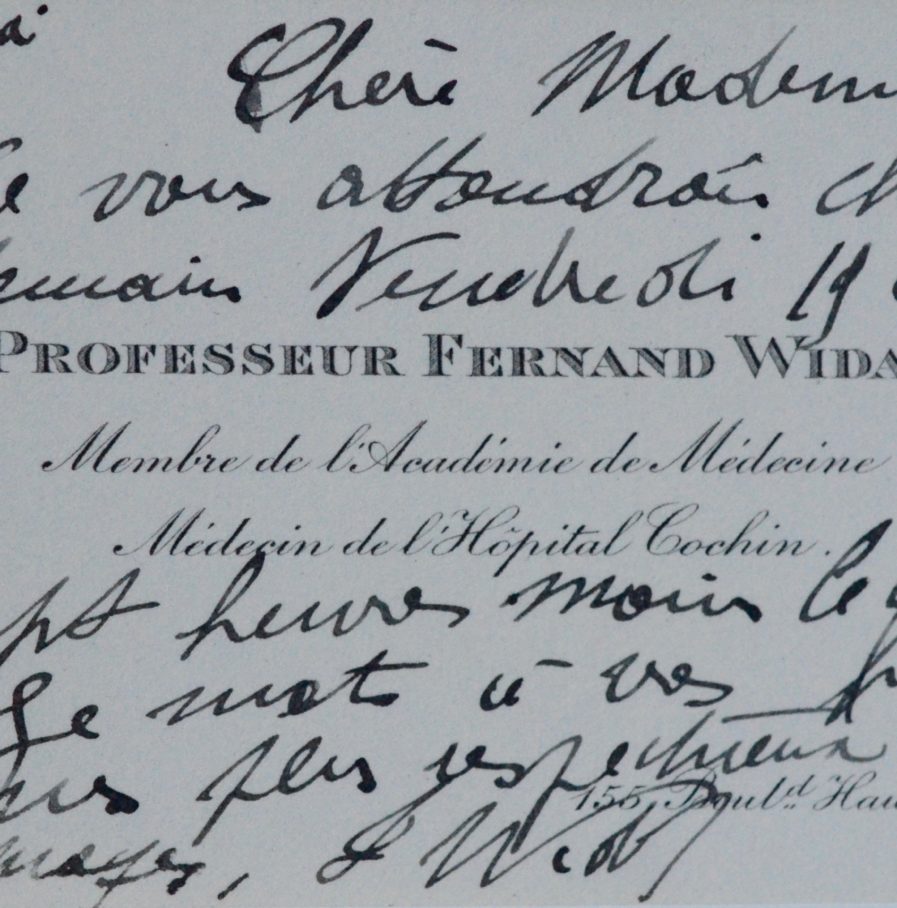 Chère Madem
vous attendrais ch
emain Vendredi 19
PROFESSEUR FERNAND WIDA
Membre de l'Académie de Médecine
Médecin de l'Hôpital Cochin.
pt heures moins le
Je mets à vos
mes plus respectueux
155, Boul.d Hau
mages, F Widal